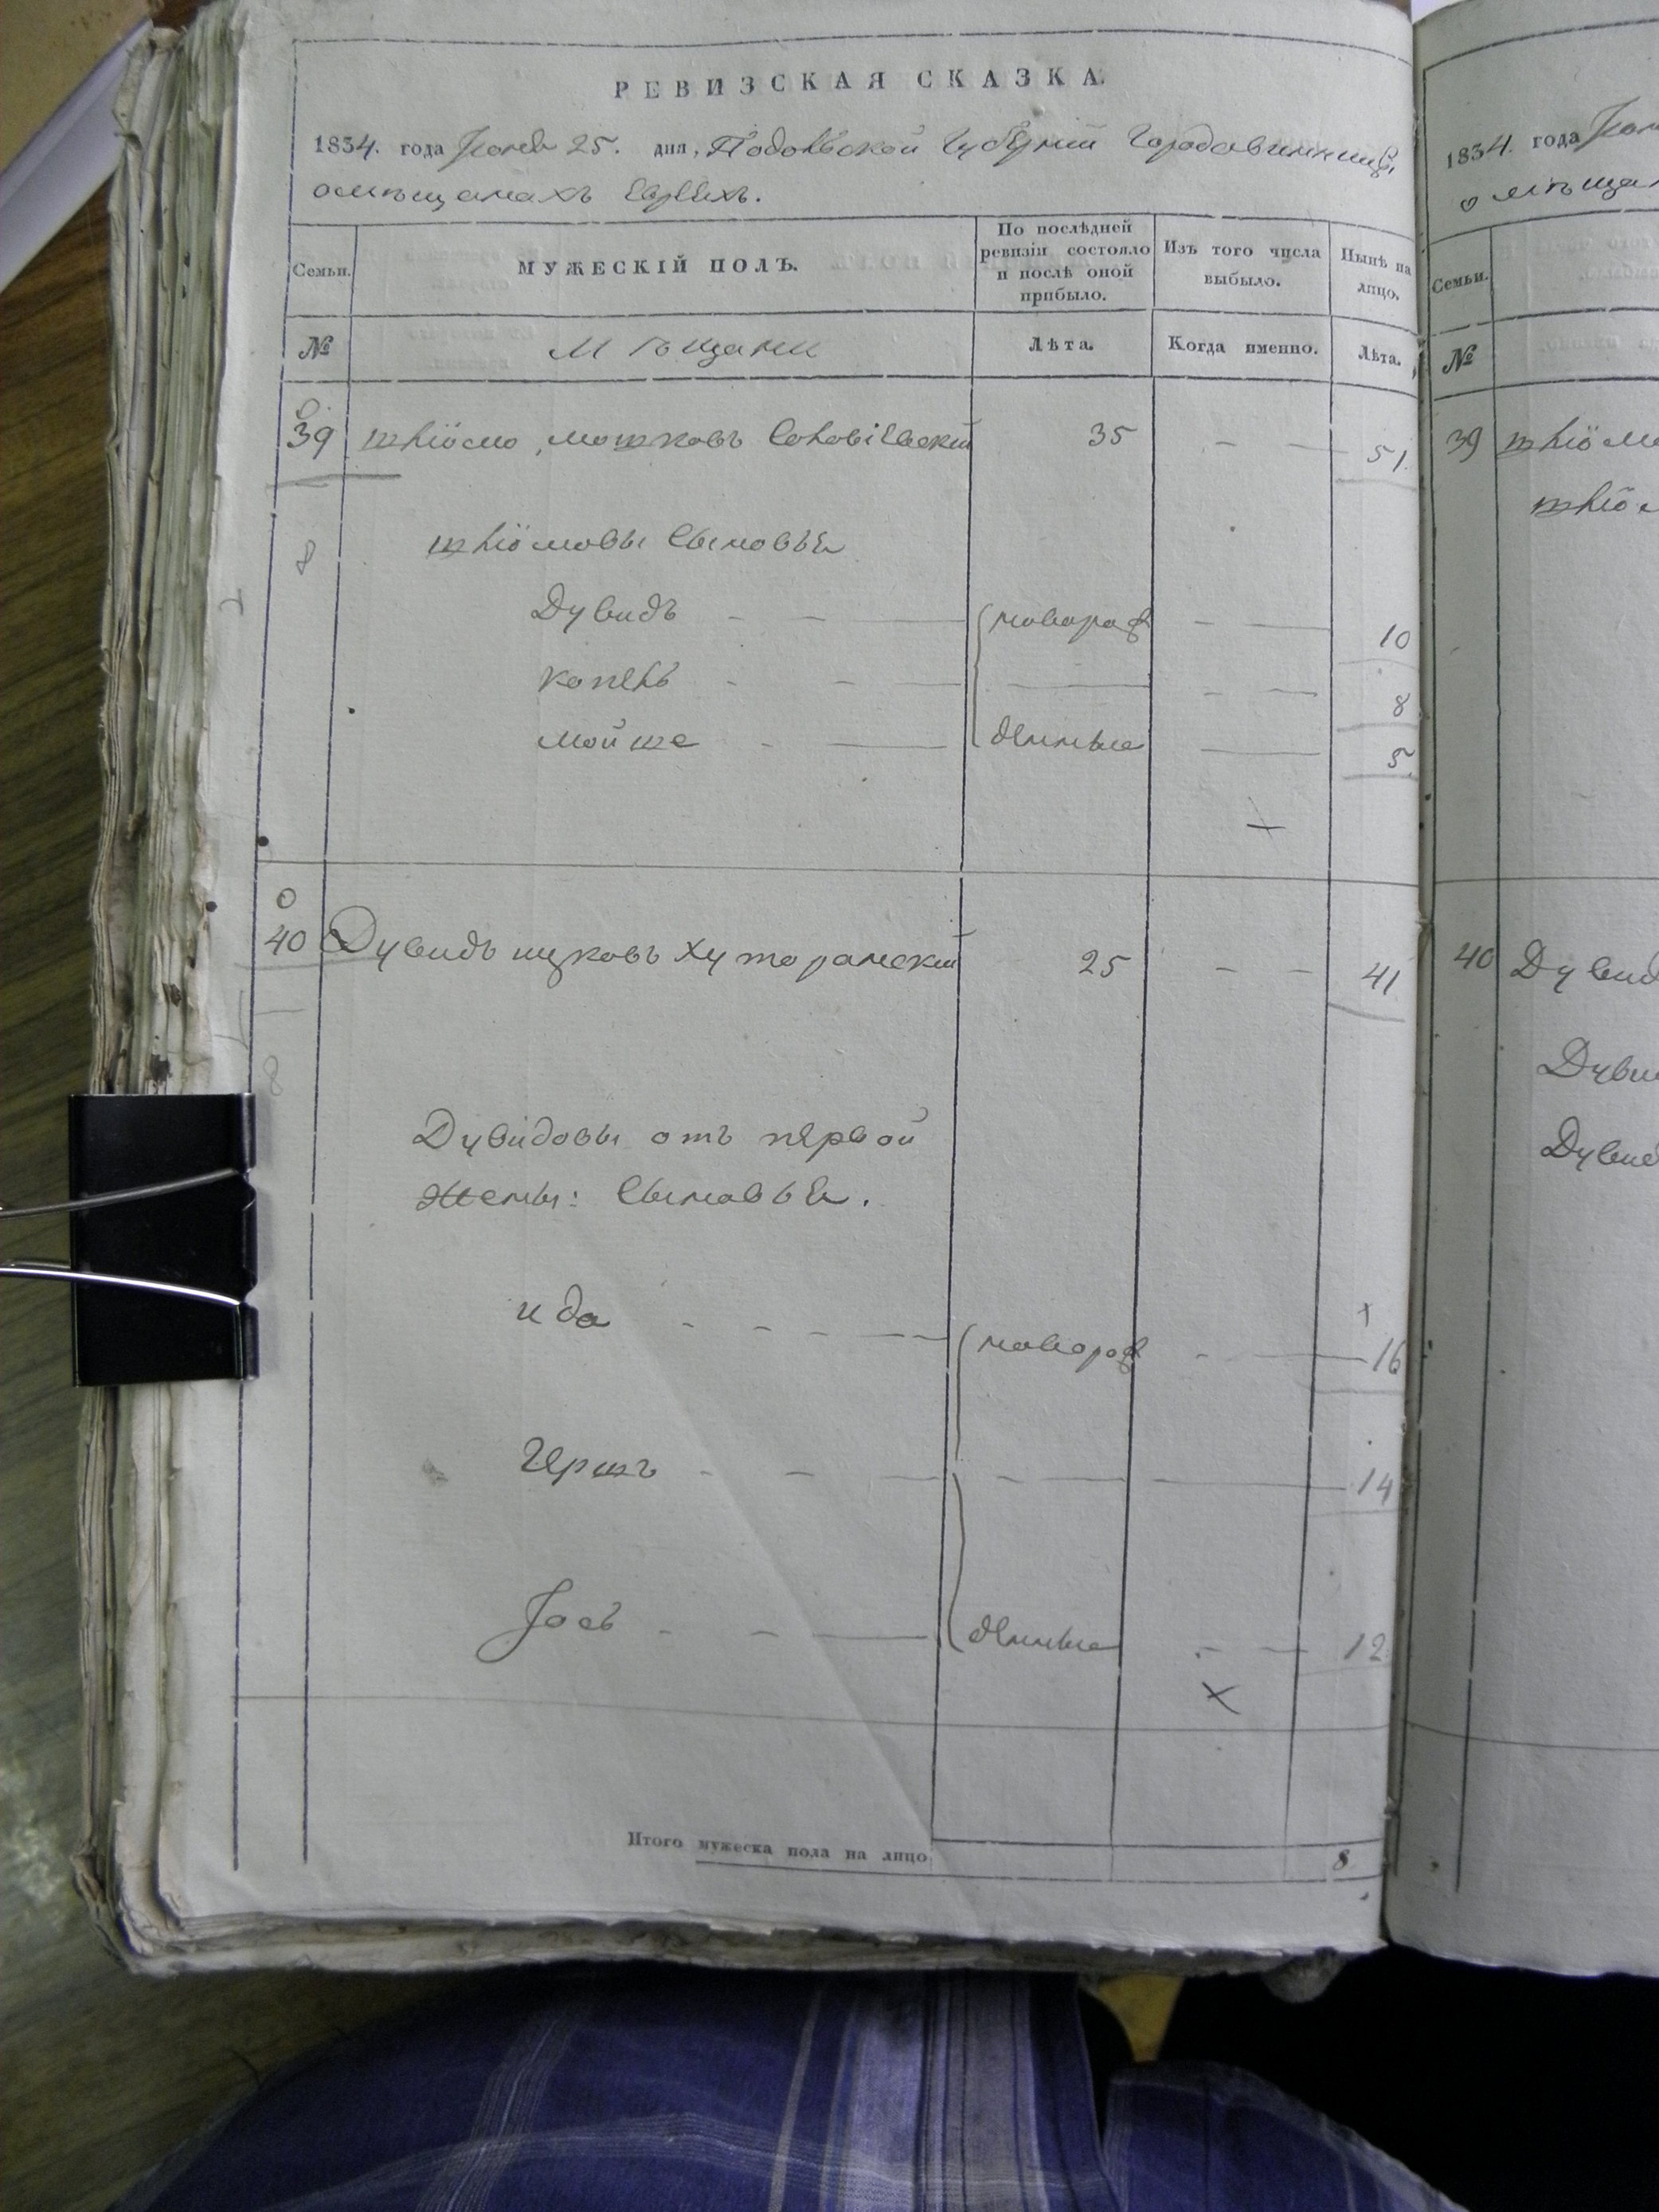 РЕВИЗСКАЯ СКАЗКА
1834. года Юня 25. дня, Подольской Губернїи Города Винницы,
о мѣщанахъ Евреяхъ.
Семьи.
МУЖЕСКІЙ ПОЛЪ.
По послѣдней ревизіи состояло и послѣ оной прибыло.
Изъ того числа выбыло.
Нынѣ на лицо.
№
Мѣщане
Лѣта.
Когда именно.
Лѣта.
39 Шліома Мошковъ 35 - - 51
8
Шліомовы Сыновья
Дувидъ - - новорож - - 10
Копель - - - - 8
Мойше - - денные - 5
40 Дувидъ Ицковъ Хуторанский 25 - - 41
8
Дувидовы отъ первой
жены: Сыновья.
Ида - - - новорож - - 16
Гершъ - - - - 14
Іось - - денные - - 12
Итого мужеска пола на лицо 8
1834. года
Семьи.
№
39
40 Дувид
Дувид